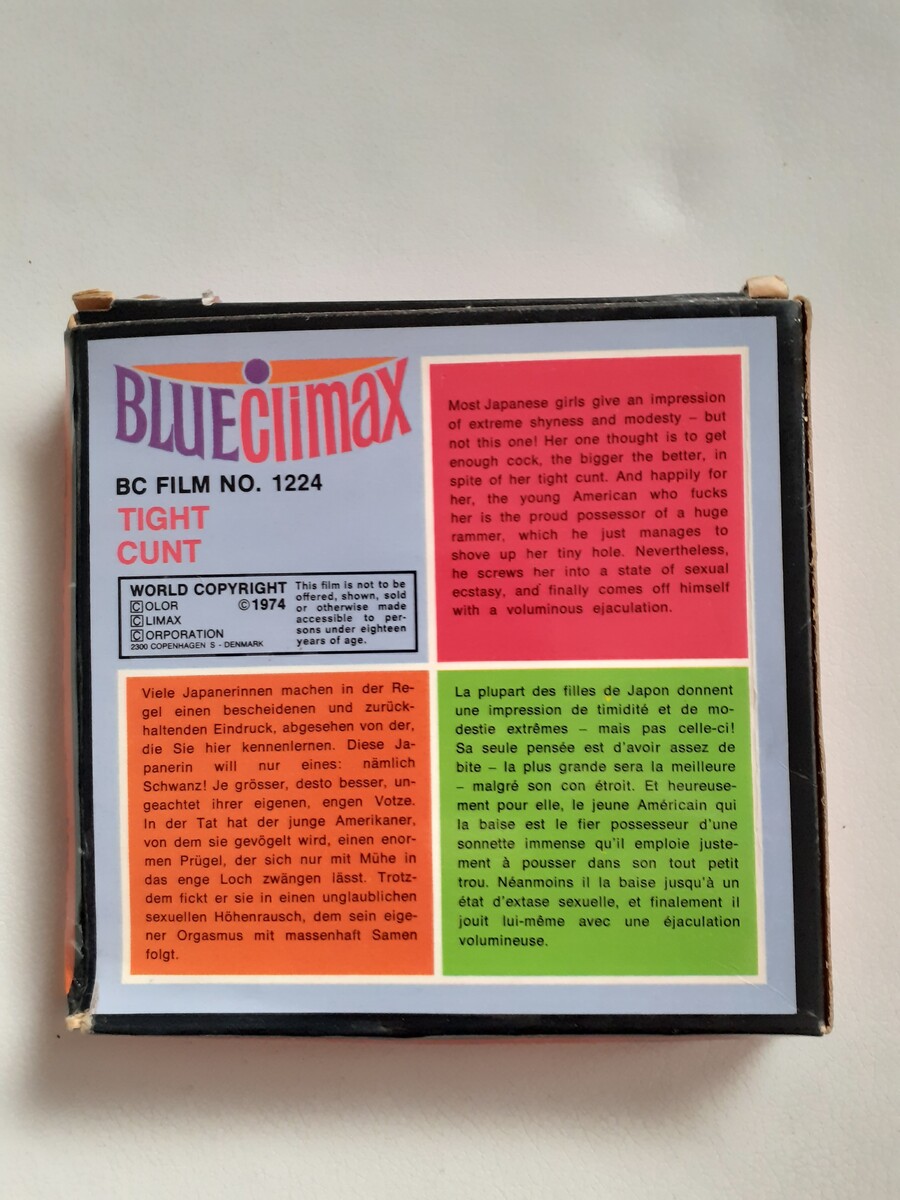 BLUE Climax
BC FILM NO. 1224
TIGHT
CUNT
WORLD COPYRIGHT
©1974
COLOR
CLIMAX
CORPORATION
2300 COPENHAGEN S - DENMARK
This film is not to be
offered, shown, sold
or otherwise made
accessible to per-
sons under eighteen
years of age.
Most Japanese girls give an impression
of extreme shyness and modesty – but
not this one! Her one thought is to get
enough cock, the bigger the better, in
spite of her tight cunt. And happily for
her, the young American who fucks
her is the proud possessor of a huge
rammer, which he just manages to
shove up her tiny hole. Nevertheless,
he screws her into a state of sexual
ecstasy, and finally comes off himself
with a voluminous ejaculation.
Viele Japanerinnen machen in der Re-
gel einen bescheidenen und zurück-
haltenden Eindruck, abgesehen von der,
die Sie hier kennenlernen. Diese Ja-
panerin will nur eines: nämlich
Schwanz! Je grösser, desto besser, un-
geachtet ihrer eigenen, engen Votze.
In der Tat hat der junge Amerikaner,
von dem sie gevögelt wird, einen enor-
men Prügel, der sich nur mit Mühe in
das enge Loch zwängen lässt. Trotz-
dem fickt er sie in einen unglaublichen
sexuellen Höhenrausch, dem sein eige-
ner Orgasmus mit massenhaft Samen
folgt.
La plupart des filles de Japon donnent
une impression de timidité et de mo-
destie extrêmes – mais pas celle-ci!
Sa seule pensée est d'avoir assez de
bite – la plus grande sera la meilleure
– malgré son con étroit. Et heureuse-
ment pour elle, le jeune Américain qui
la baise est le fier possesseur d'une
sonnette immense qu'il emploie juste-
ment à pousser dans son tout petit
trou. Néanmoins il la baise jusqu'à un
état d'extase sexuelle, et finalement il
jouit lui-même avec une éjaculation
volumineuse.